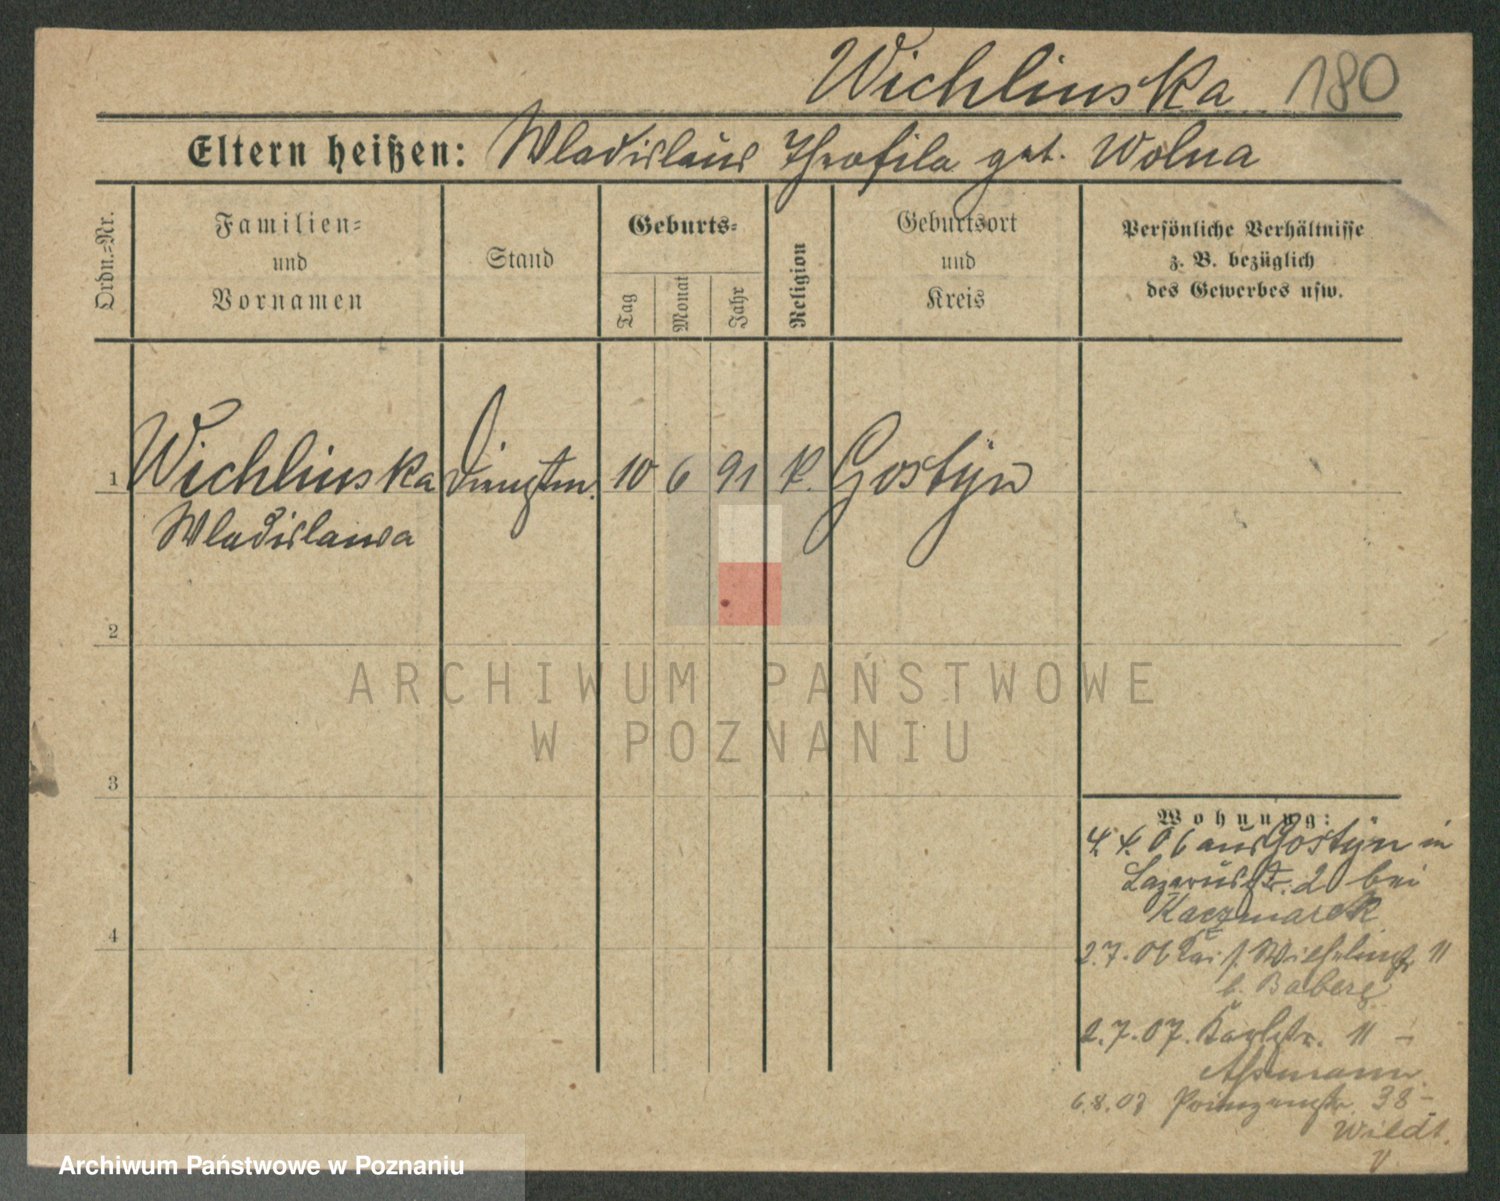 Wichlinska 180
Eltern heißen: Wladislaus Theofila geb. Wolna
Ordn.-Nr.
Familien-
und
Vornamen
Stand
Geburts-
Tag
Monat
Jahr
Religion
Geburtsort
und
Kreis
Persönliche Verhältnisse
z. B. bezüglich
des Gewerbes usw.
1 Wichlinska Dienstm. 10 6 91 k. Gostyn
Wladislawa
2
3
4
Wohnung:
4. 4. 06 aus Gostyn in
Lazarusstr. 2 bei
Kaczmarek
2.7.06 Wilhelmstr 11
b. Baberg
2.7.07. Karlstr. 11 –
Assmann
6.8.07 Prinzenstr. 38 –
Wildt.
ARCHIWUM PAŃSTWOWE
W POZNANIU
Archiwum Państwowe w Poznaniu